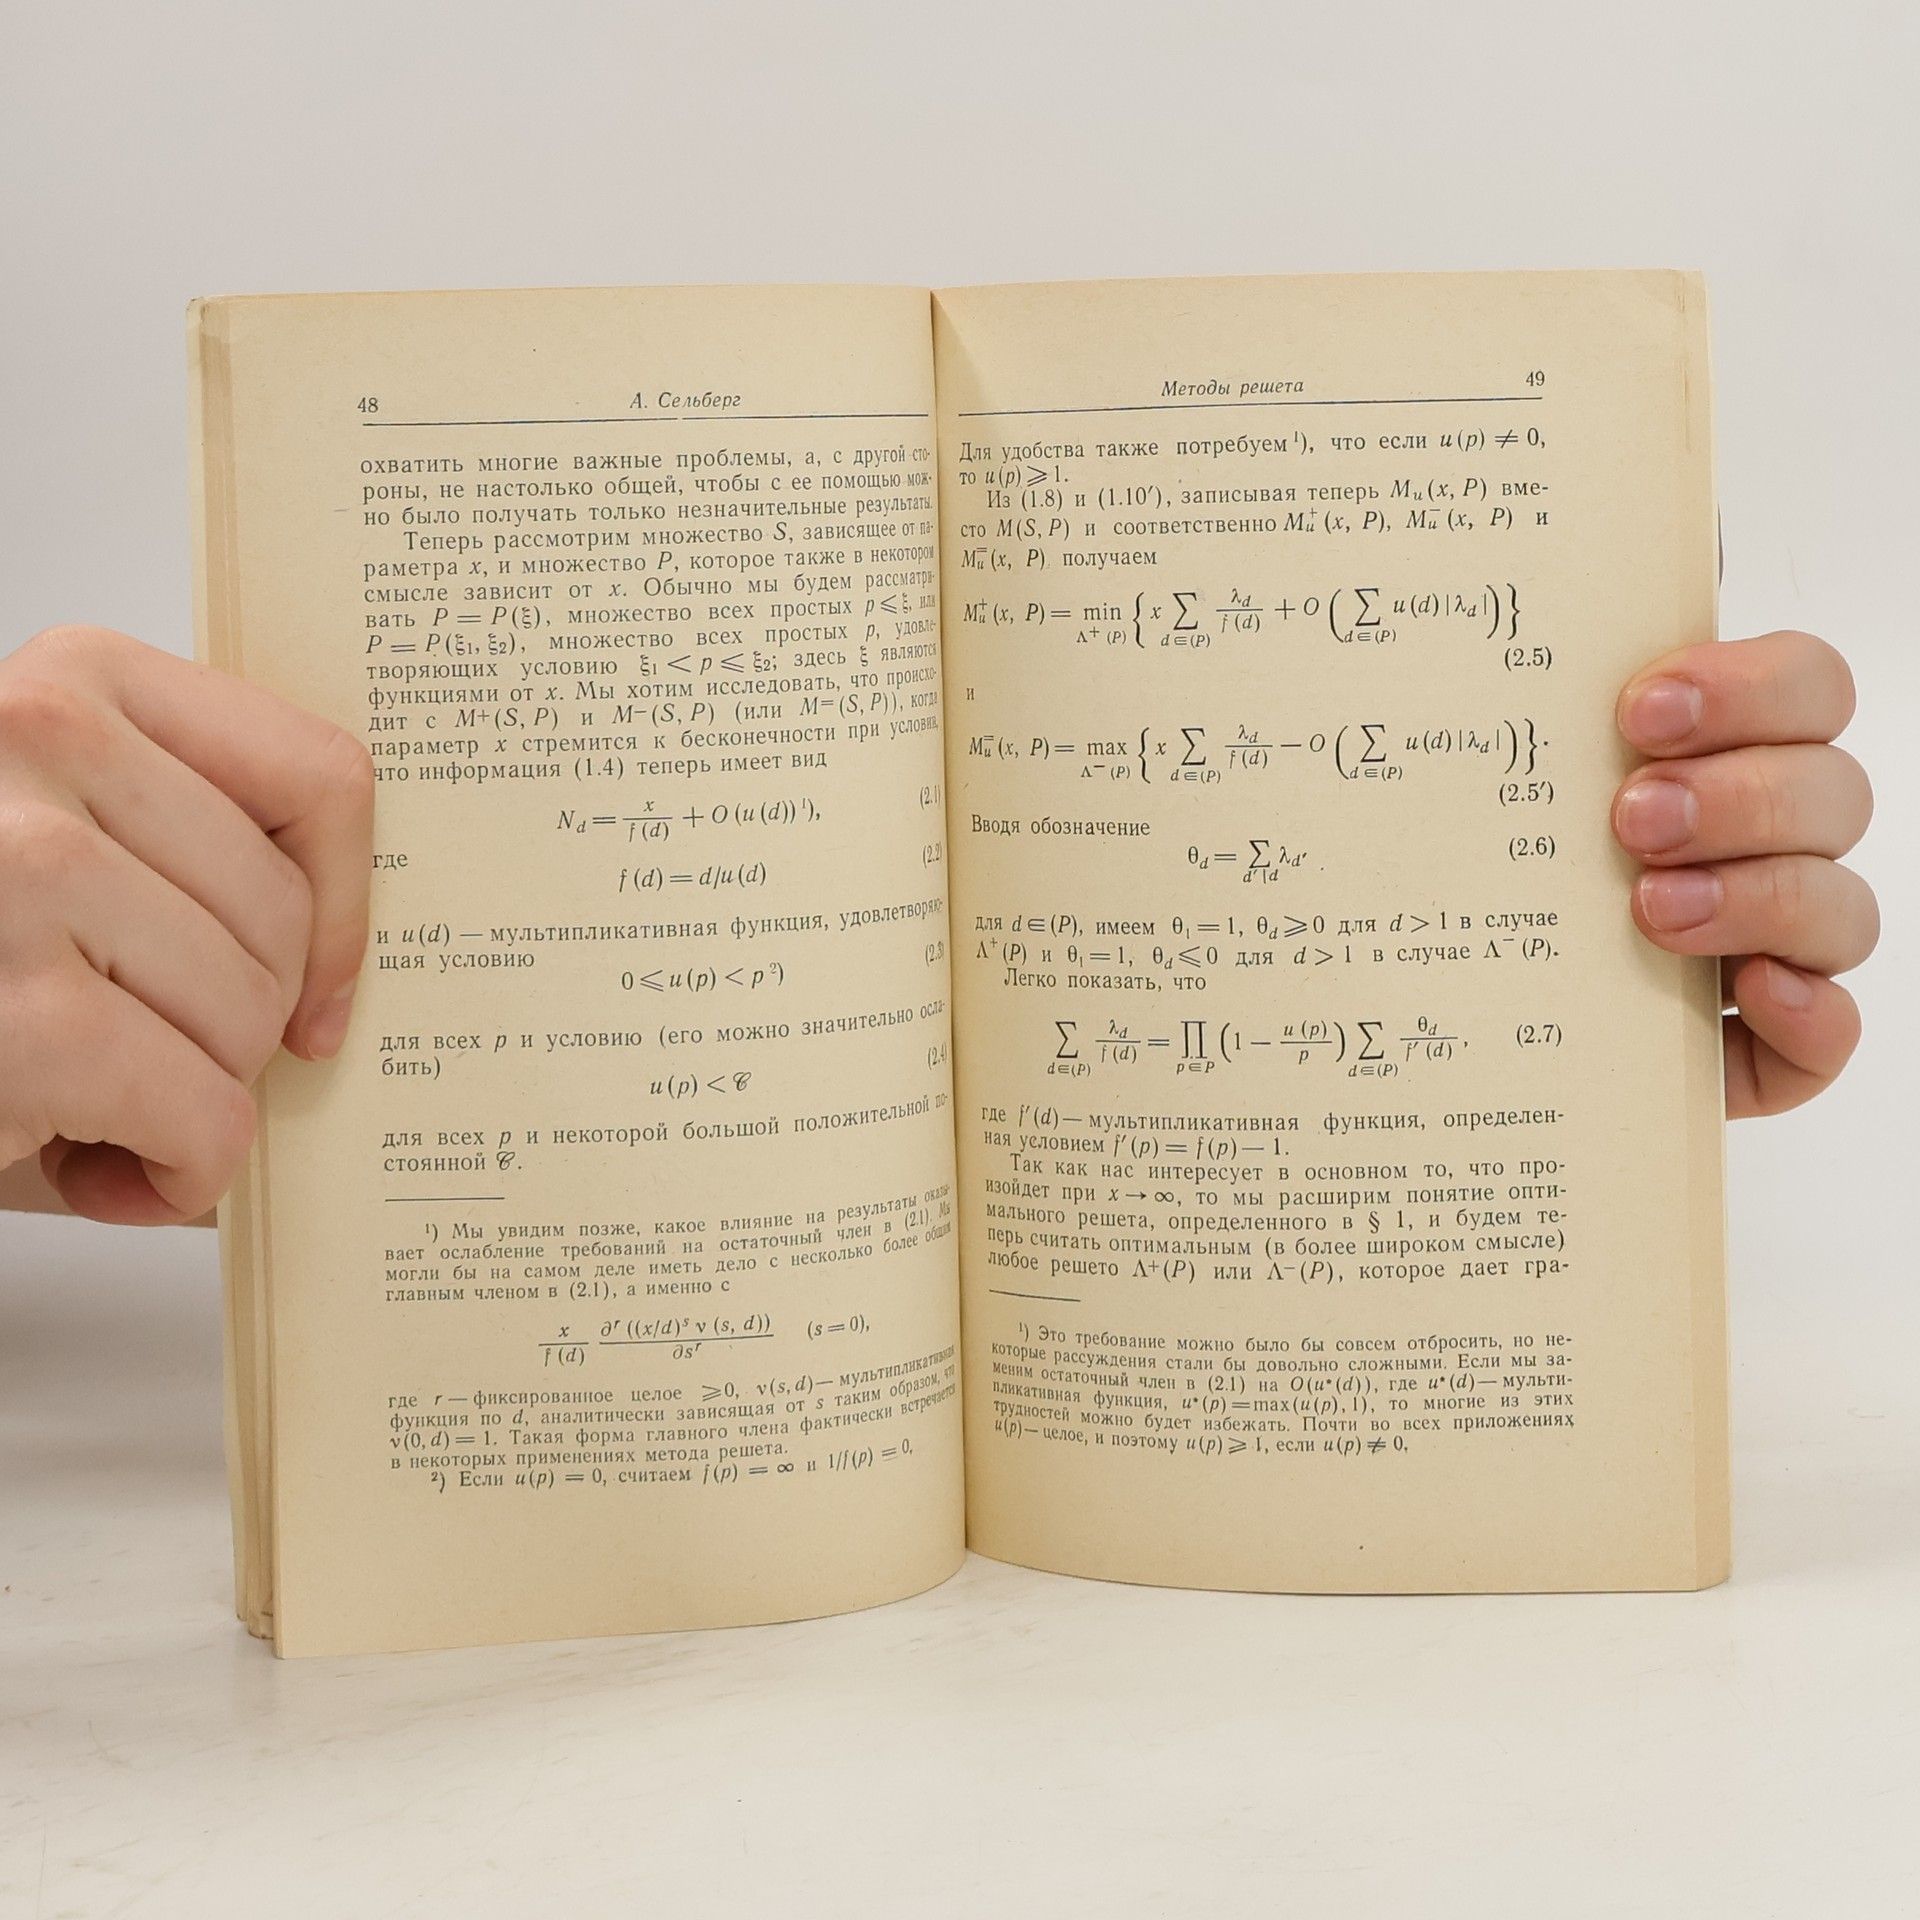 48
А. Сельберг
охватить многие важные проблемы, а, с другой сто-
роны, не настолько общей, чтобы с ее помощью мож-
но было получать только незначительные результаты.
Теперь рассмотрим множество S, зависящее от па-
раметра x, и множество P, которое также в некотором
смысле зависит от x. Обычно мы будем рассматри-
вать P = P(ξ), множество всех простых p ⩽ ξ, или
P = P(ξ₁, ξ₂), множество всех простых p, удовле-
творяющих условию ξ₁ < p ⩽ ξ₂; здесь ξ являются
функциями от x. Мы хотим исследовать, что происхо-
дит с M⁺(S, P) и M⁻(S, P) (или M⁼(S, P)), когда
параметр x стремится к бесконечности при условии,
что информация (1.4) теперь имеет вид
N_d = x/f(d) + O(u(d))¹), (2.1)
где
f(d) = d/u(d) (2.2)
и u(d) — мультипликативная функция, удовлетворяю-
щая условию
0 ⩽ u(p) < p²) (2.3)
для всех p и условию (его можно значительно осла-
бить)
u(p) < 𝒞 (2.4)
для всех p и некоторой большой положительной по-
стоянной 𝒞.
¹) Мы увидим позже, какое влияние на результаты оказы-
вает ослабление требований на остаточный член в (2.1). Мы
могли бы на самом деле иметь дело с несколько более общим
главным членом в (2.1), а именно с
x/f(d) ∂ʳ((x/d)ˢ ν(s, d))/∂sʳ (s = 0),
где r — фиксированное целое ⩾0, ν(s, d) — мультипликативная
функция по d, аналитически зависящая от s таким образом, что
ν(0, d) = 1. Такая форма главного члена фактически встречается
в некоторых применениях метода решета.
²) Если u(p) = 0, считаем f(p) = ∞ и 1/f(p) = 0.
Методы решета
49
Для удобства также потребуем¹), что если u(p) ≠ 0,
то u(p) ⩾ 1.
Из (1.8) и (1.10′), записывая теперь M_u(x, P) вме-
сто M(S, P) и соответственно M_u⁺(x, P), M_u⁻(x, P) и
M_u⁼(x, P) получаем
M_u⁺(x, P) = min_{Λ⁺(P)} { x ∑_{d∈(P)} λ_d/f(d) + O( ∑_{d∈(P)} u(d)|λ_d| ) }
(2.5)
и
M_u⁼(x, P) = max_{Λ⁻(P)} { x ∑_{d∈(P)} λ_d/f(d) − O( ∑_{d∈(P)} u(d)|λ_d| ) }.
(2.5′)
Вводя обозначение
θ_d = ∑_{d′|d} λ_{d′} (2.6)
для d ∈ (P), имеем θ₁ = 1, θ_d ⩾ 0 для d > 1 в случае
Λ⁺(P) и θ₁ = 1, θ_d ⩽ 0 для d > 1 в случае Λ⁻(P).
Легко показать, что
∑_{d∈(P)} λ_d/f(d) = ∏_{p∈P} (1 − u(p)/p) ∑_{d∈(P)} θ_d/f′(d), (2.7)
где f′(d) — мультипликативная функция, определен-
ная условием f′(p) = f(p) — 1.
Так как нас интересует в основном то, что про-
изойдет при x → ∞, то мы расширим понятие опти-
мального решета, определенного в § 1, и будем те-
перь считать оптимальным (в более широком смысле)
любое решето Λ⁺(P) или Λ⁻(P), которое дает гра-
¹) Это требование можно было бы совсем отбросить, но не-
которые рассуждения стали бы довольно сложными. Если мы за-
меним остаточный член в (2.1) на O(u*(d)), где u*(d) — мульти-
пликативная функция, u*(p) = max(u(p), 1), то многие из этих
трудностей можно будет избежать. Почти во всех приложениях
u(p) — целое, и поэтому u(p) ⩾ 1, если u(p) ≠ 0.